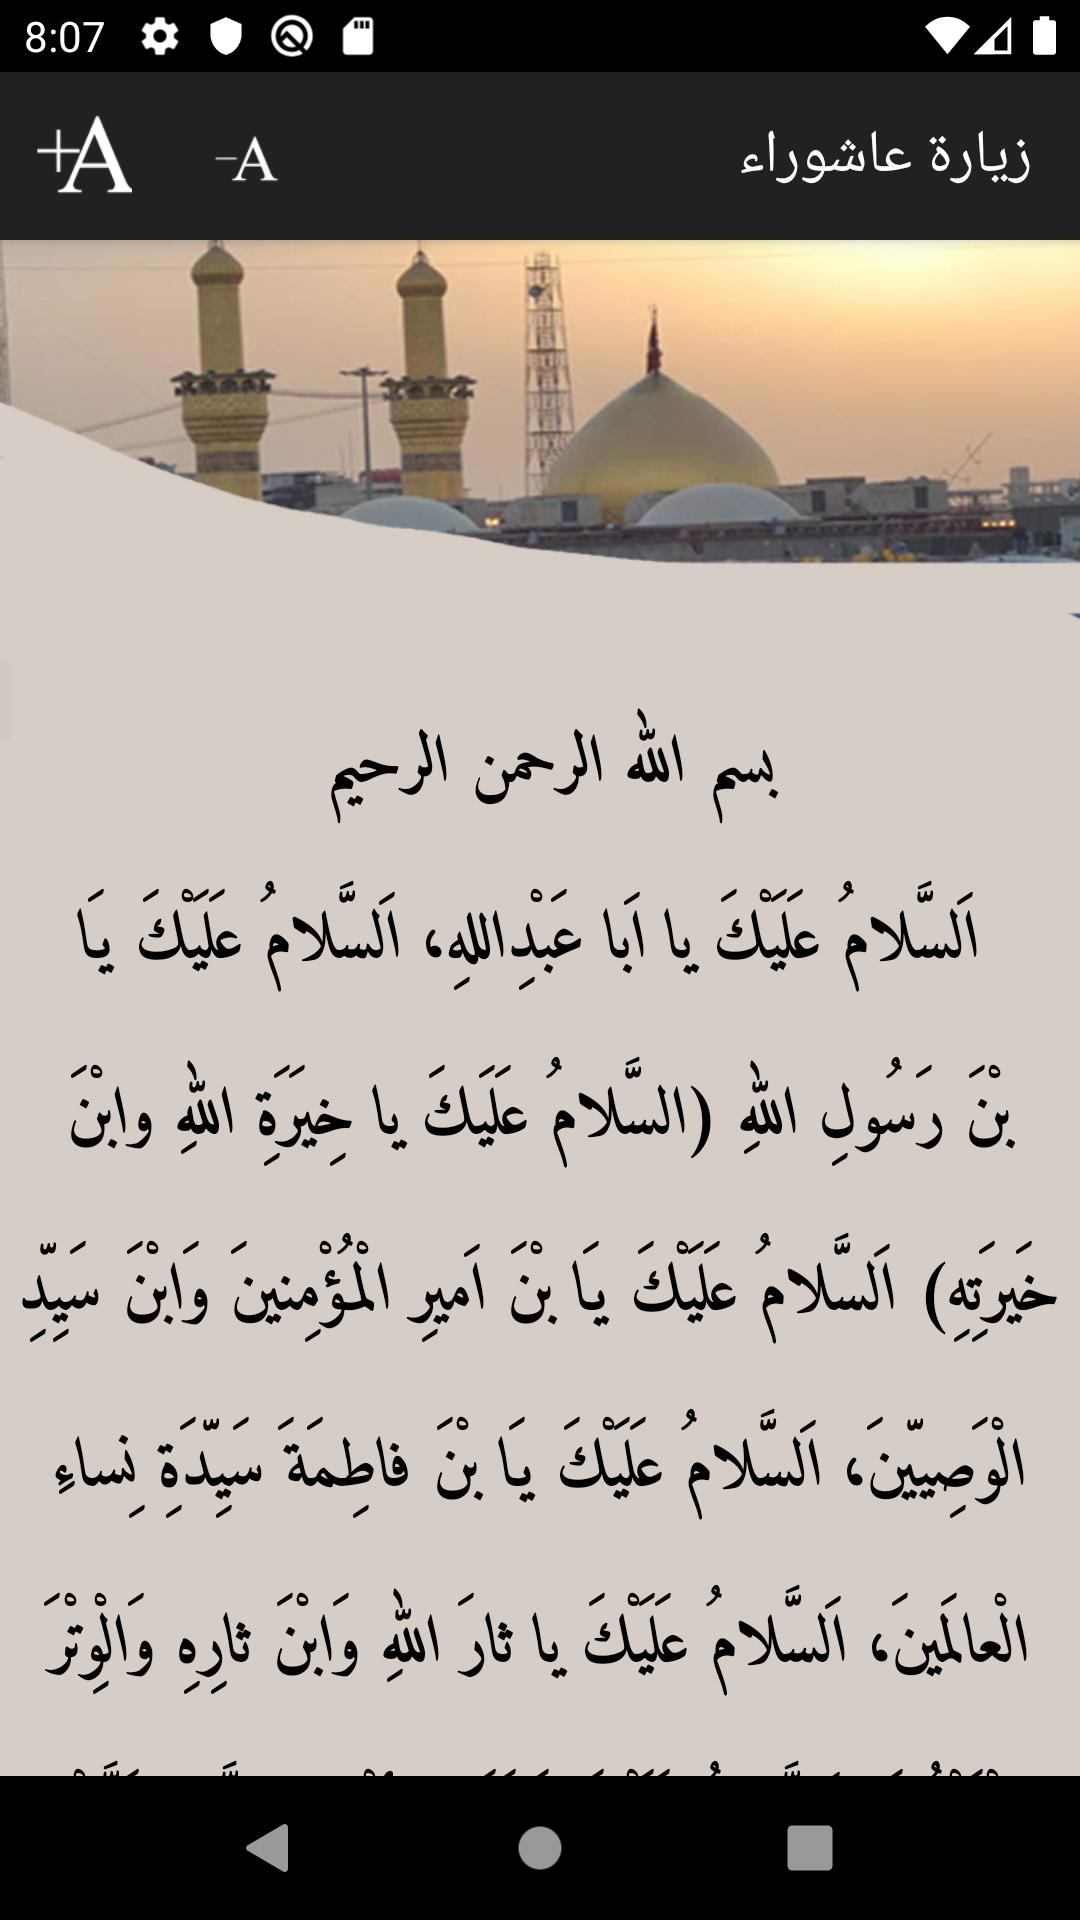 8:07
+A
-A
زيارة عاشوراء
بسم الله الرحمن الرحيم
اَلسَّلامُ عَلَيْكَ يا اَبا عَبْدِاللهِ، اَلسَّلامُ عَلَيْكَ يَا
بْنَ رَسُولِ اللهِ (السَّلامُ عَلَيَكَ يا خِيَرَةِ اللهِ وابْنَ
خَيرَتِهِ) اَلسَّلامُ عَلَيْكَ يَا بْنَ اَميرِ الْمُؤْمِنينَ وَابْنَ سَيِّدِ
الْوَصِيّينَ، اَلسَّلامُ عَلَيْكَ يَا بْنَ فاطِمَةَ سَيِّدَةِ نِساءِ
الْعالَمينَ، اَلسَّلامُ عَلَيْكَ يا ثارَ اللهِ وَابْنَ ثارِهِ وَالْوِتْرَ